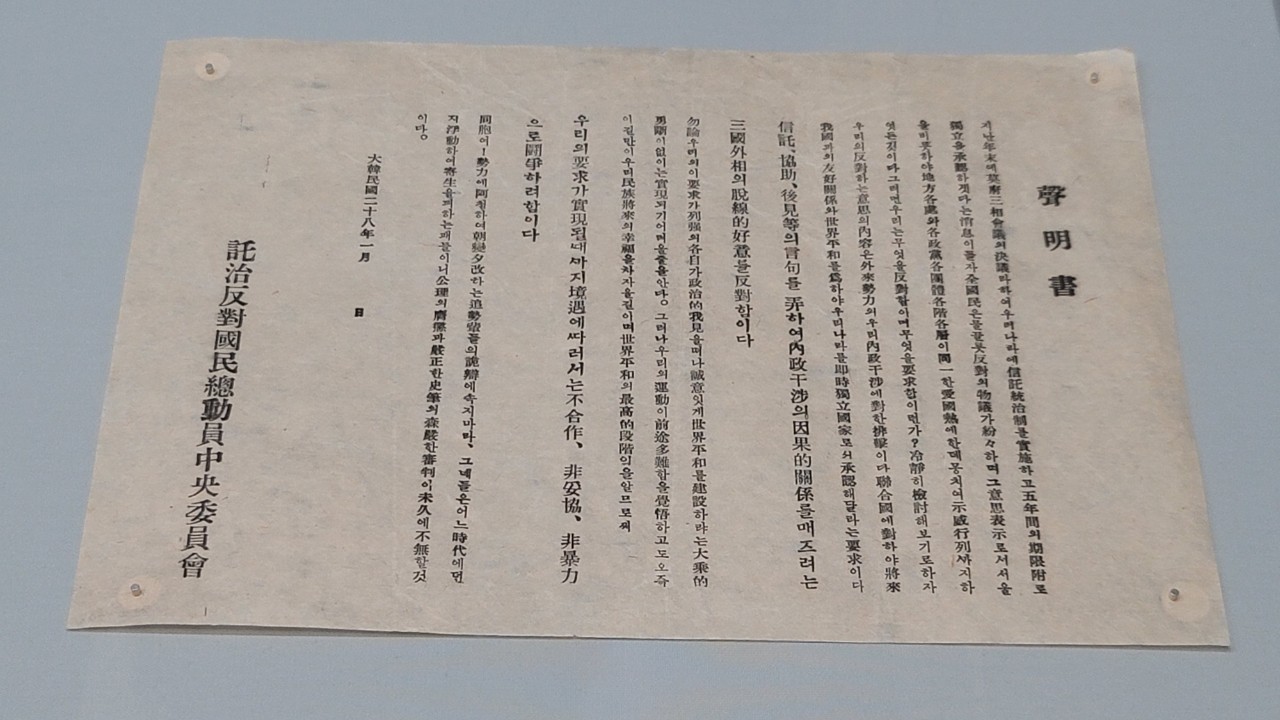 聲明書
지난年末에莫府三相會議의決議라하여우리나라에信託統治制를實施하고五年間의期限附로
獨立을承認하겟다는消息이들자全國民은물끌틋反對의物議가紛々하며그意思表示로서서울
을비롯하야地方各處와各政黨各團體各階各層이同一한愛國熱에한데뭉치여示威行列까지하
엿든것이다그러면우리는무엇을反對함이며무엇을要求함이런가?冷靜히檢討해보기로하자
우리의反對하는意思의內容은外來勢力의우리內政干涉에對한排擊이다聯合國에對하야將來
我國과의友好關係와世界平和를爲하야우리나라를即時獨立國家로서承認해달라는要求이다
信託、協助、後見等의言句를弄하여內政干涉의因果的關係를매즈려는
三國外相의脫線的好意를反對함이다
勿論우리의이要求가列强의各自가政治的我見을떠나誠意잇게世界平和를建設하랴는大乘的
勇斷이없이는實現되기어려움을안다。그러나우리의運動이前途多難함을覺悟하고도오즉
이길만이우리民族將來의幸福을차자올길이며世界平和의最高的段階임을알므로써
우리의要求가實現될때까지境遇에따러서는不合作、非妥協、非暴力
으로鬪爭하려함이다
同胞여!勢力에阿附하여朝變夕改하는追勢輩들의詭辯에속지마라、그네들은어느時代에던
지浮動하여寄生을꾀하는패들이니公理의膺懲과嚴正한史筆의森嚴한審判이未久에不無할것
이다。
大韓民國二十八年一月 日
託治反對國民總動員中央委員會